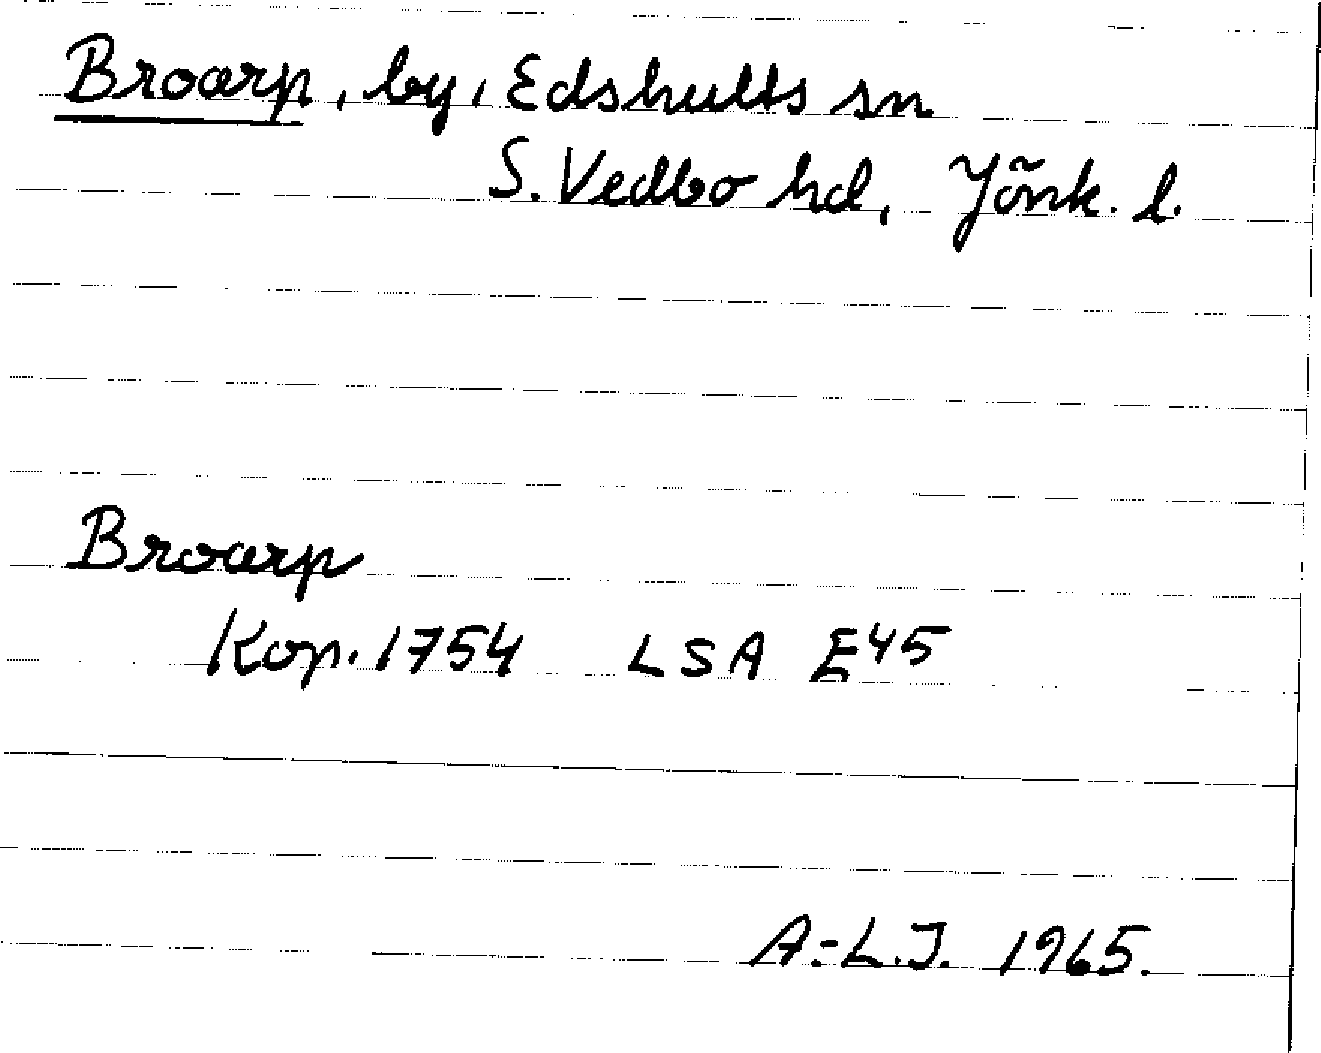 Broarp, by, Edshults sn
S. Vedbo hd, Jönk. l.
Broarp
Kop. 1754 LSA E45
A-L.J. 1965.